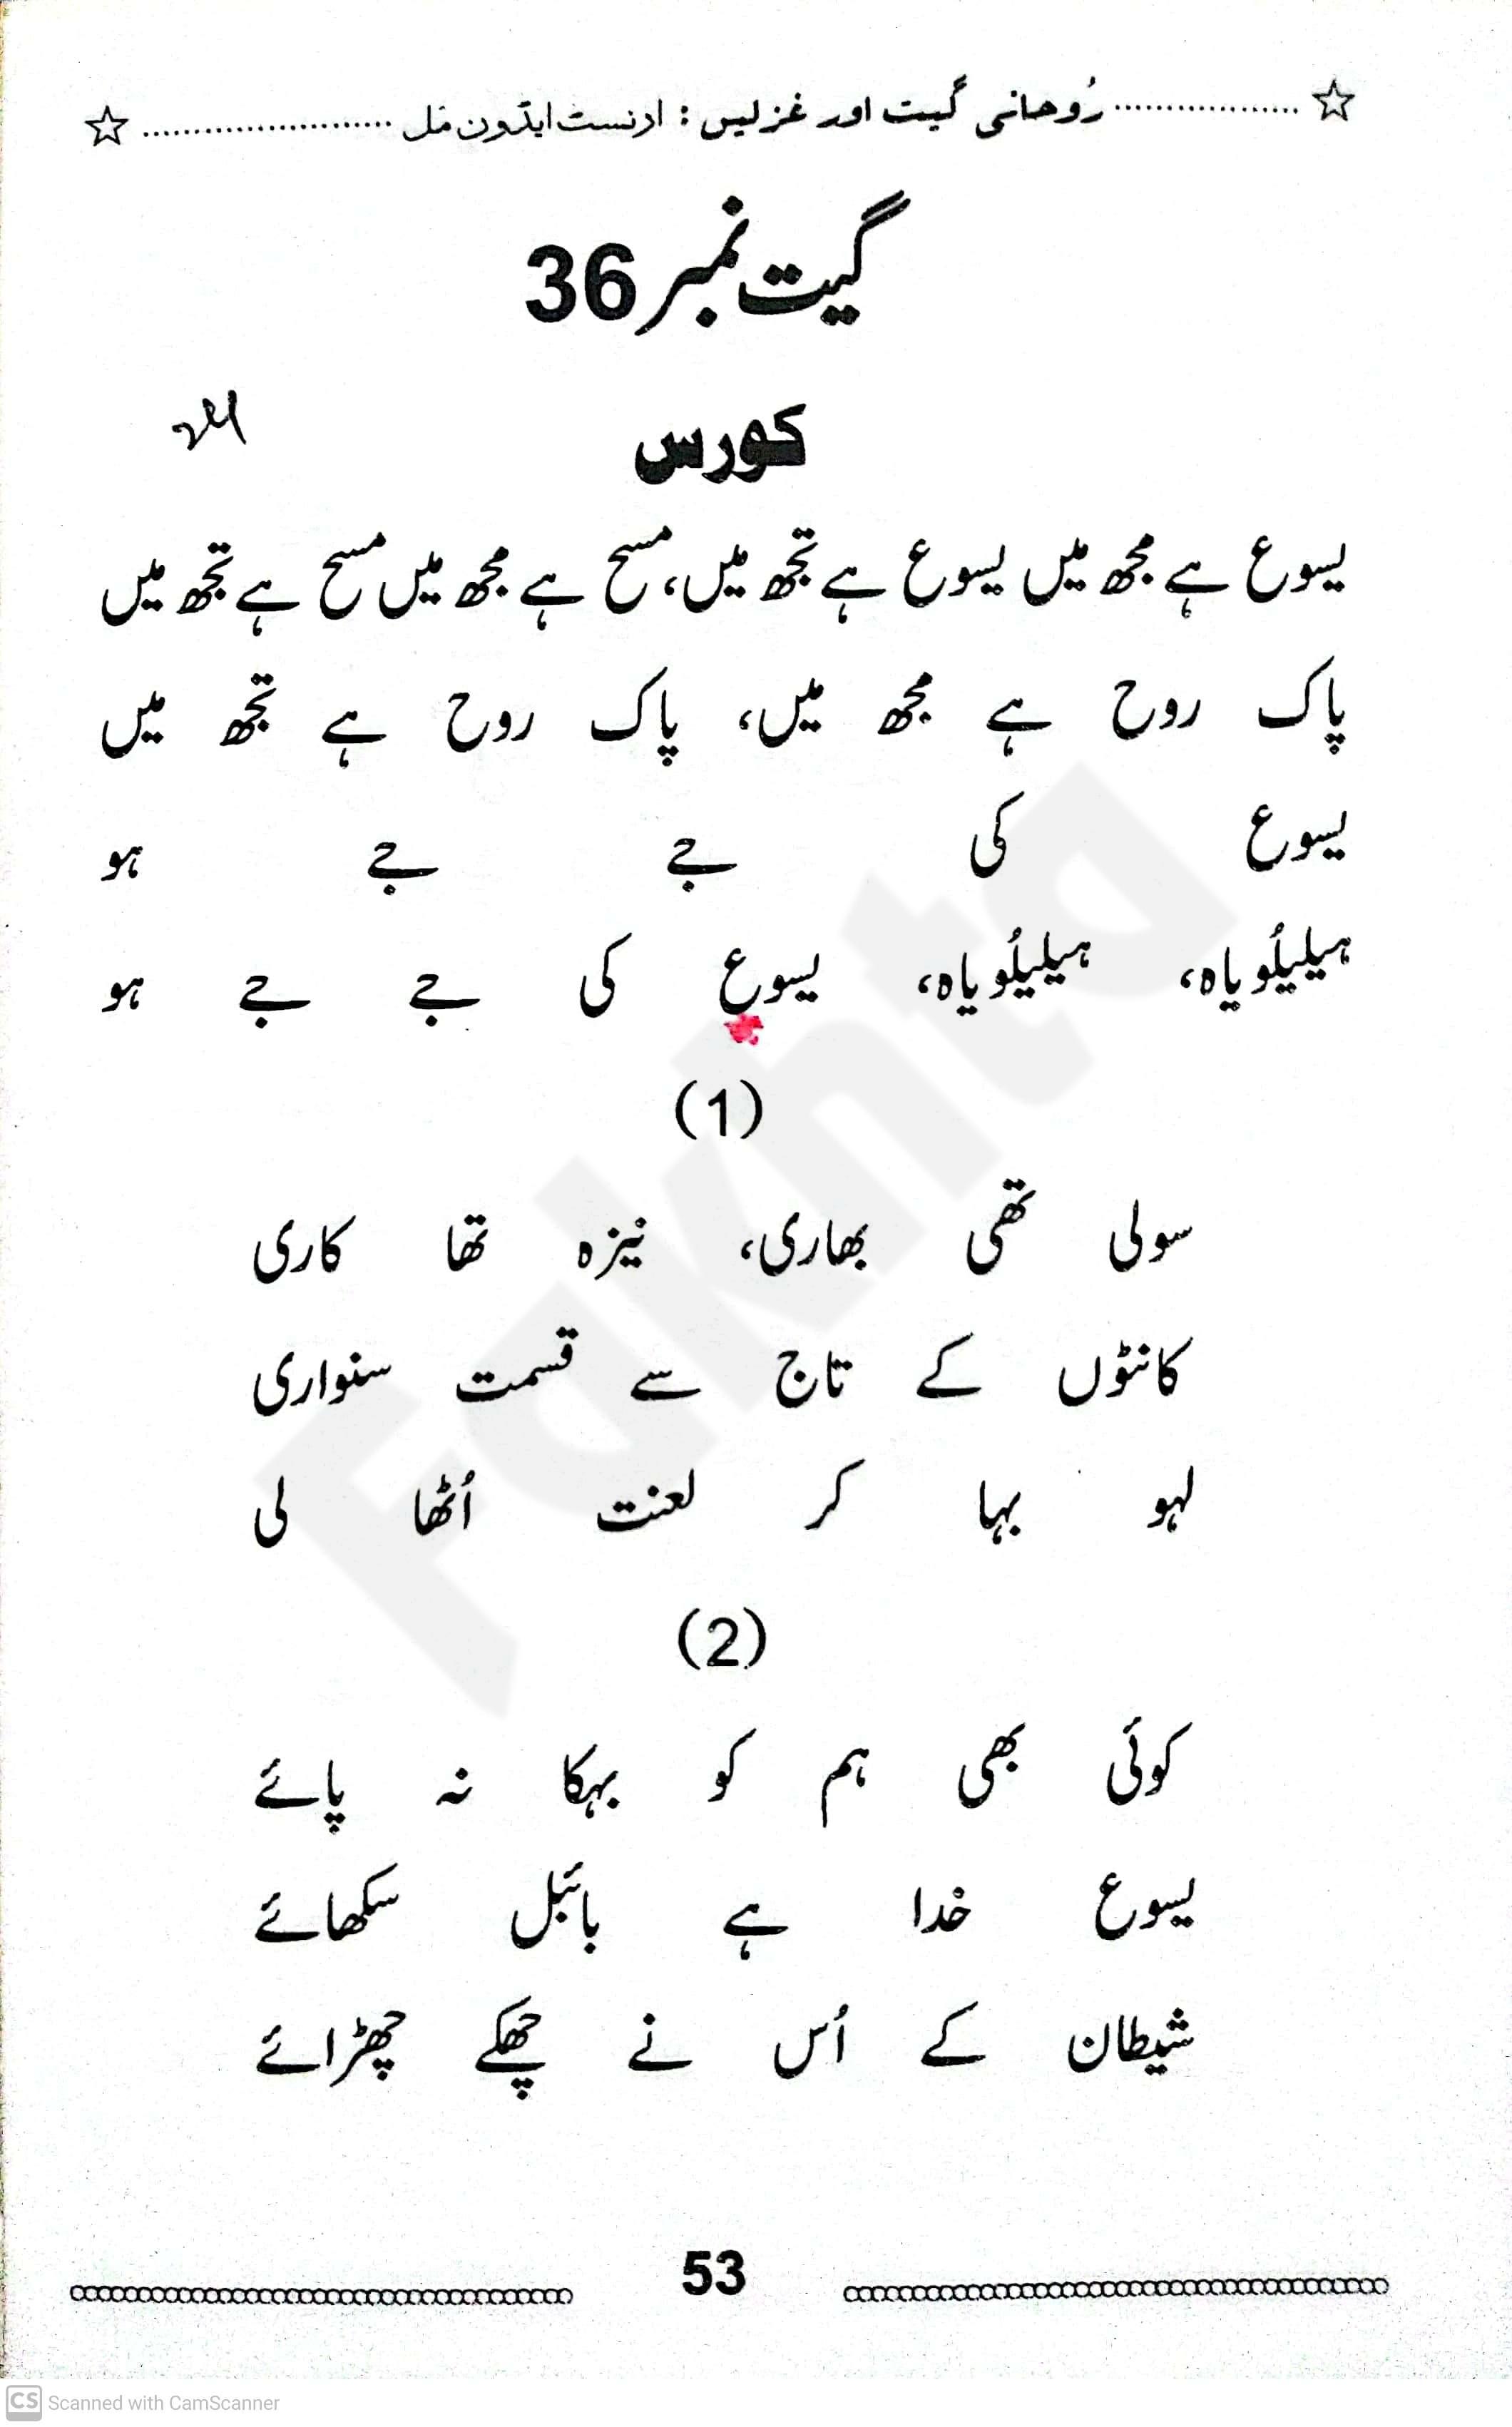 رُوحانی گیت اور غزلیں : ارنسٹ ایڈون مَل
گیت نمبر 36
کورس
یسوع ہے مجھ میں یسوع ہے تجھ میں، مسیح ہے مجھ میں مسیح ہے تجھ میں
پاک روح ہے مجھ میں، پاک روح ہے تجھ میں
یسوع کی جے جے ہو
ہیلیلُویاہ، ہیلیلُویاہ، یسوع کی جے جے ہو
(1)
سولی تھی بھاری، نیزہ تھا کاری
کانٹوں کے تاج سے قسمت سنواری
لہو بہا کر لعنت اُٹھا لی
(2)
کوئی بھی ہم کو بہکا نہ پائے
یسوع خدا ہے بائبل سکھائے
شیطان کے اُس نے چھکے چھڑائے
53
Fakhta
CS Scanned with CamScanner